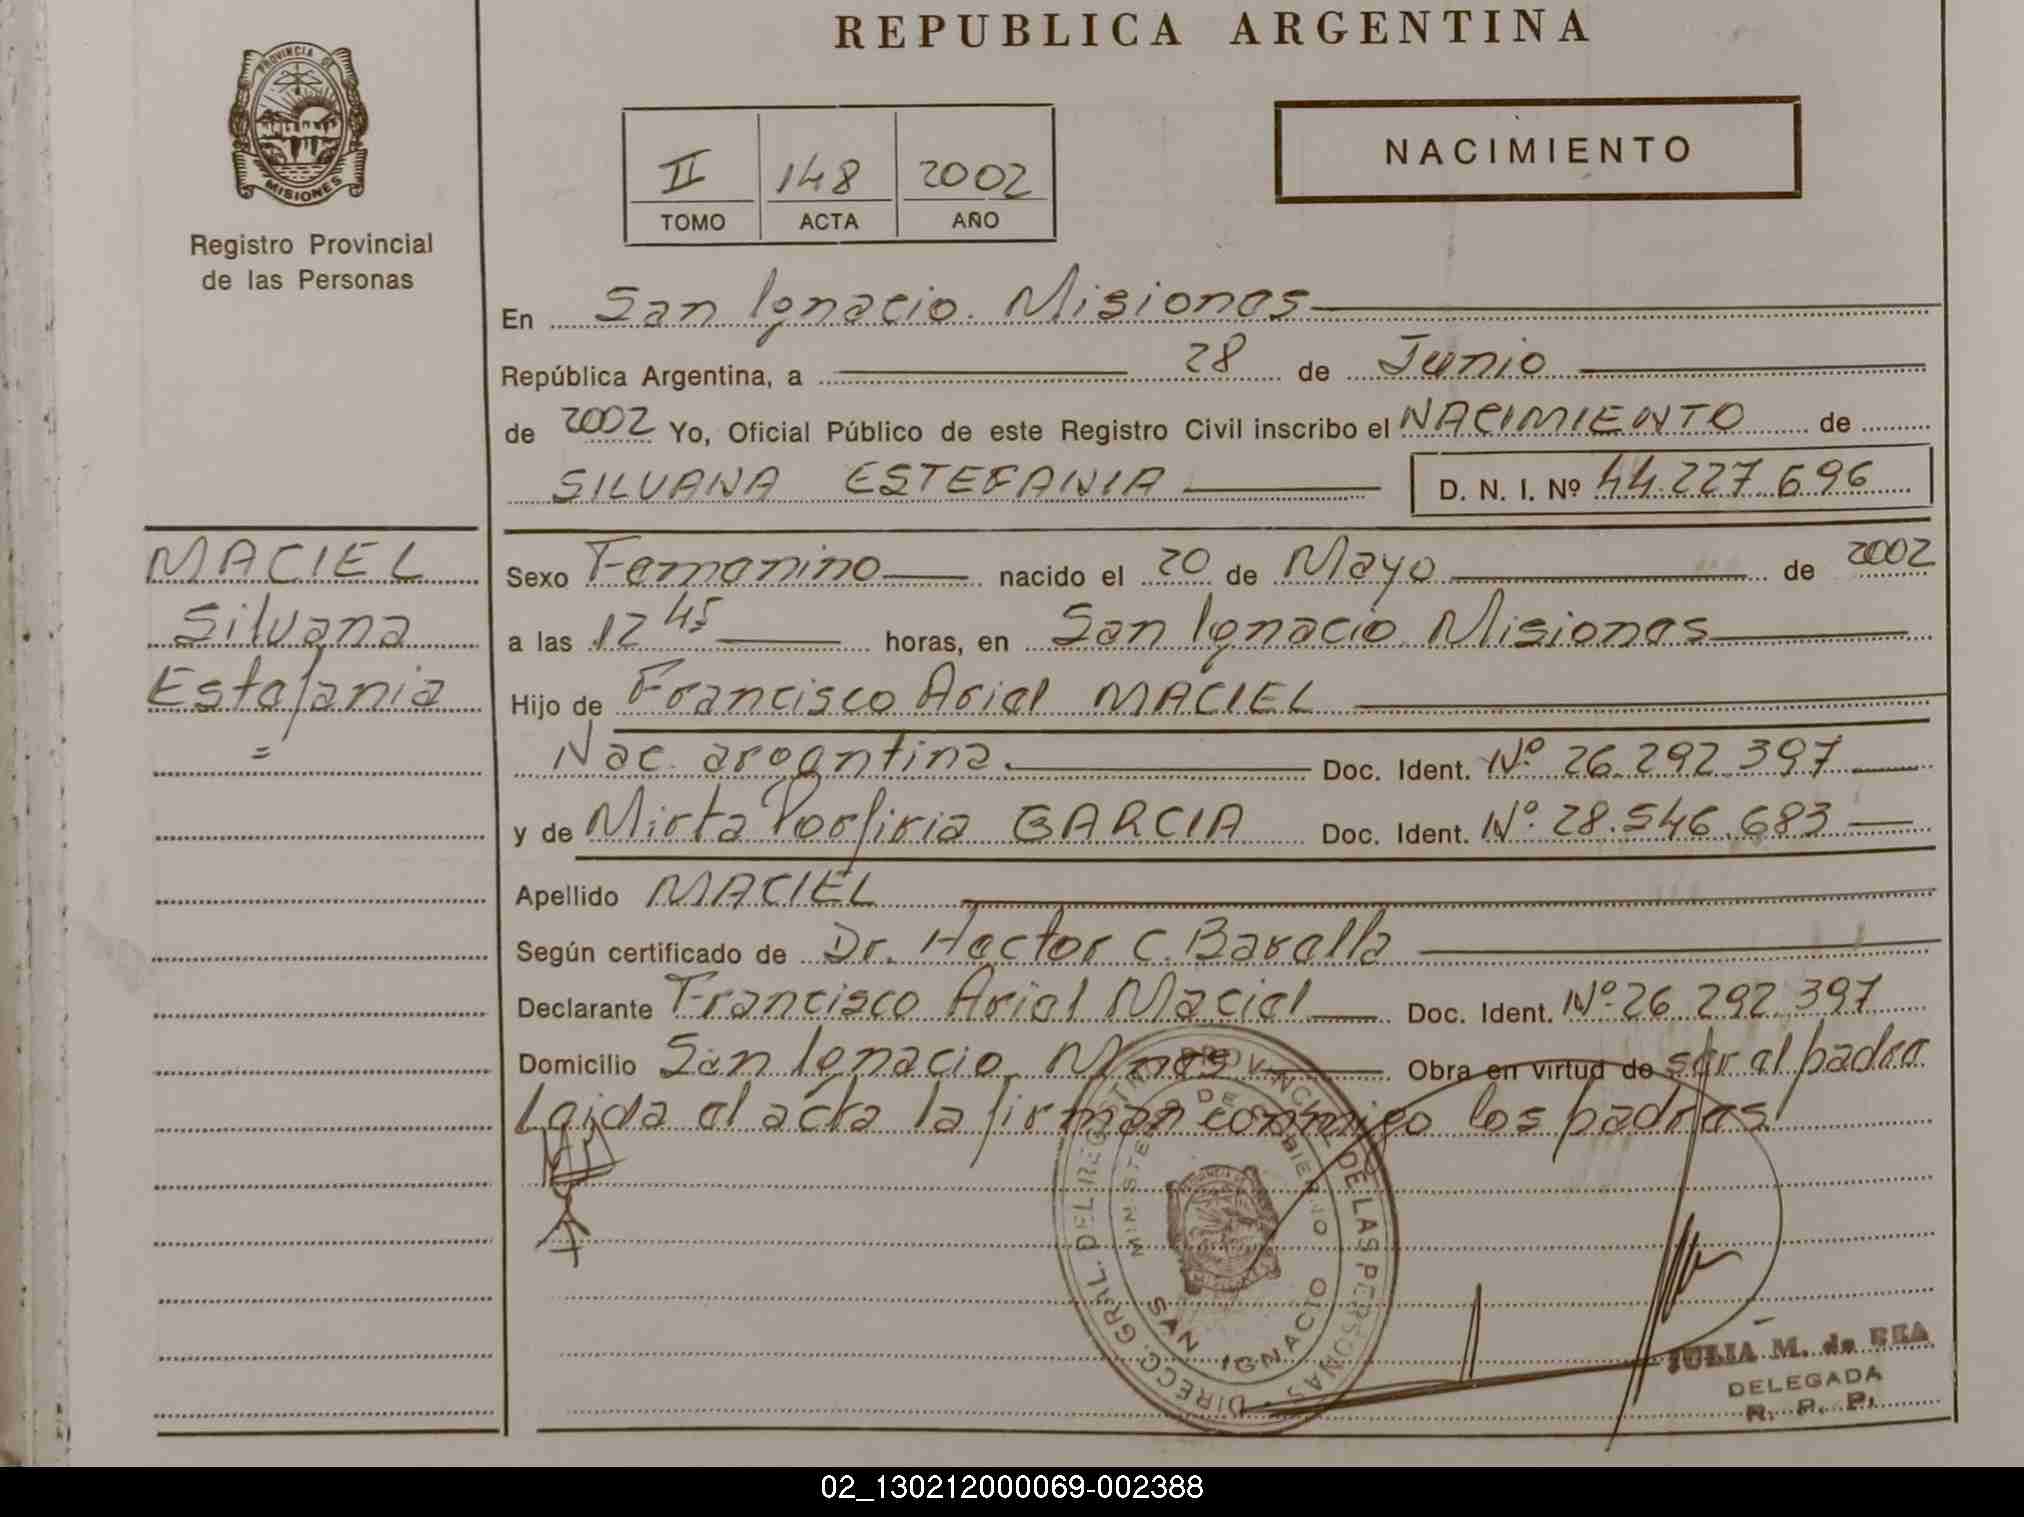 REPUBLICA ARGENTINA
PROVINCIA DE
MISIONES
Registro Provincial
de las Personas
II 148 2002
TOMO ACTA AÑO
NACIMIENTO
En San Ignacio. Misiones
República Argentina, a 28 de Junio
de 2002 Yo, Oficial Público de este Registro Civil inscribo el NACIMIENTO de
SILVANA ESTEFANIA D. N. I. Nº 44.227.696
MACIEL
Silvana
Estefania
=
Sexo Femenino nacido el 20 de Mayo de 2002
a las 12 45 horas, en San Ignacio Misiones
Hijo de Francisco Ariel MACIEL
Nac. argentina. Doc. Ident. Nº 26.292.397
y de Mirta Porfiria GARCIA Doc. Ident. Nº 28.546.683
Apellido MACIEL
Según certificado de Dr. Hector C. Barella
Declarante Francisco Ariel Maciel Doc. Ident. Nº 26.292.397
Domicilio San Ignacio Mnes Obra en virtud de ser el padre
Leida el acta la firman conmigo los padres
DIRECC. GRAL. DEL REGISTRO PROVINCIAL DE LAS PERSONAS
MINISTERIO DE GOBIERNO
SAN IGNACIO
JULIA M. de REA
DELEGADA
R. P. P.
02_130212000069-002388